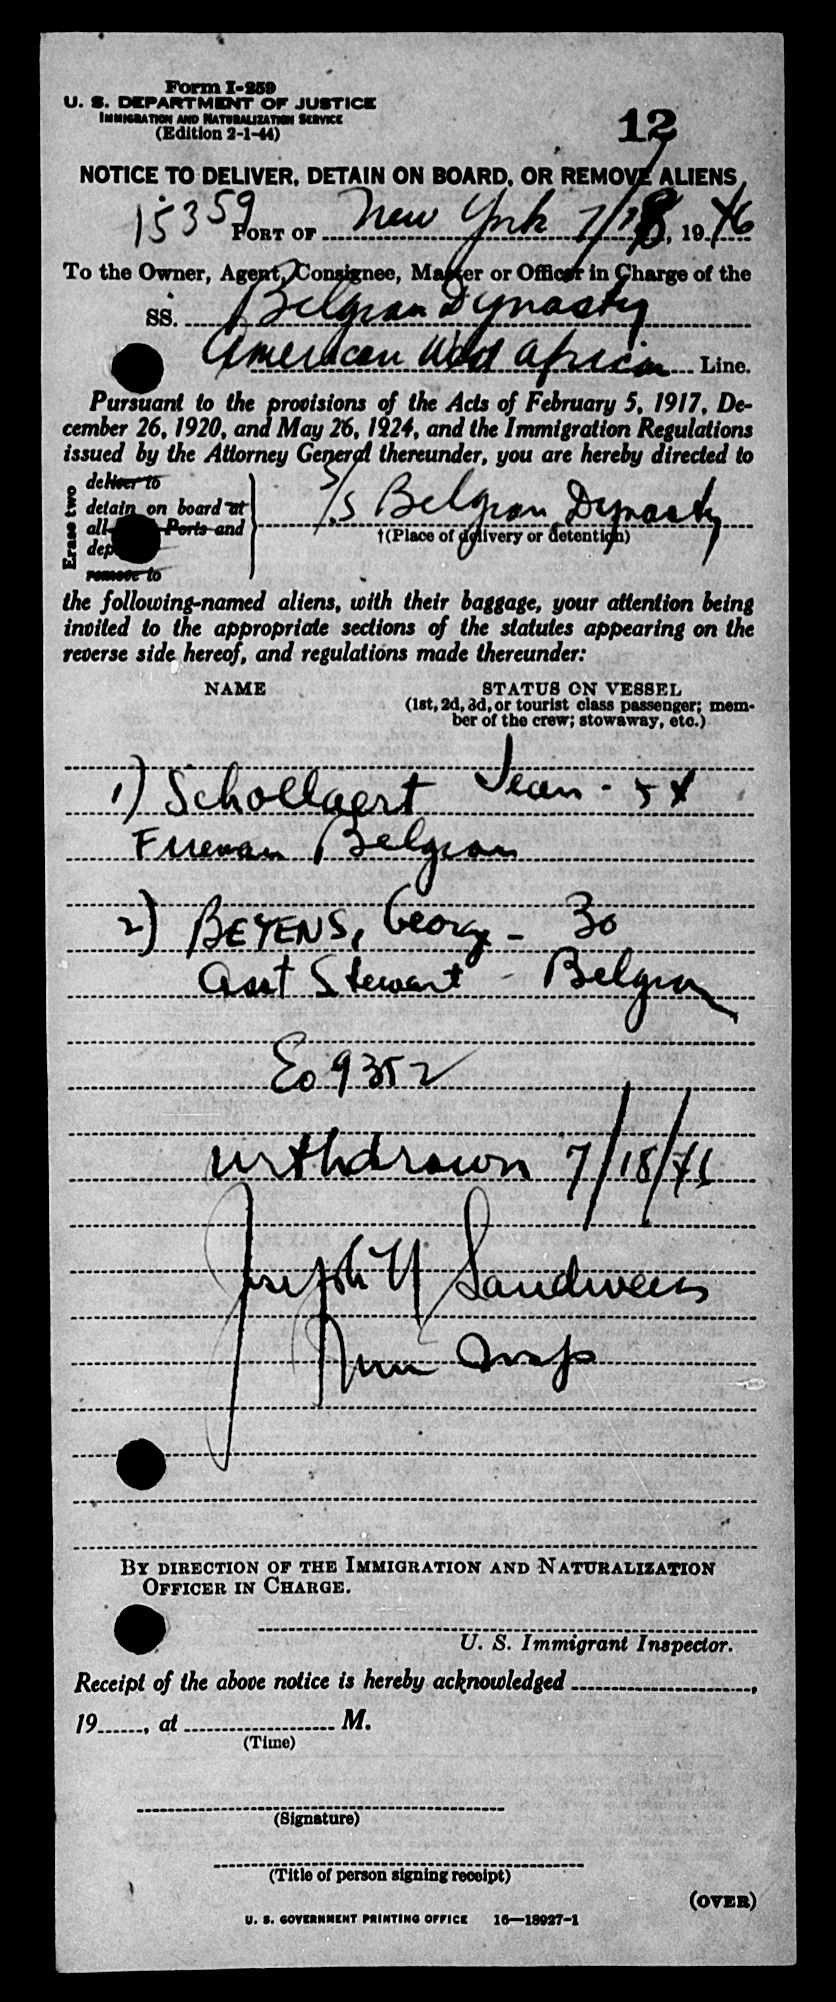 Form I-259
U. S. DEPARTMENT OF JUSTICE
IMMIGRATION AND NATURALIZATION SERVICE
(Edition 2-1-44)
12
NOTICE TO DELIVER, DETAIN ON BOARD, OR REMOVE ALIENS
15359
PORT OF New York 7/18, 1946
To the Owner, Agent, Consignee, Master or Officer in Charge of the
SS. Belgian Dynasty
American West African Line.
Pursuant to the provisions of the Acts of February 5, 1917, De-
cember 26, 1920, and May 26, 1924, and the Immigration Regulations
issued by the Attorney General thereunder, you are hereby directed to
Erase two
deliver to
detain on board at
all Ports and
remove to
S/S Belgian Dynasty
†(Place of delivery or detention)
the following-named aliens, with their baggage, your attention being
invited to the appropriate sections of the statutes appearing on the
reverse side hereof, and regulations made thereunder:
NAME STATUS ON VESSEL
(1st, 2d, 3d, or tourist class passenger; mem-
ber of the crew; stowaway, etc.)
1) Schollaert Jean - 54
Fireman Belgian
2) BEYENS, George - 30
Asst Stewart - Belgian
Eo 9352
withdrawn 7/18/46
Joseph
By DIRECTION OF THE IMMIGRATION AND NATURALIZATION
OFFICER IN CHARGE.
U. S. Immigrant Inspector.
Receipt of the above notice is hereby acknowledged ,
19 , at M.
(Time)
(Signature)
(Title of person signing receipt)
(OVER)
U. S. GOVERNMENT PRINTING OFFICE 16—18927-1